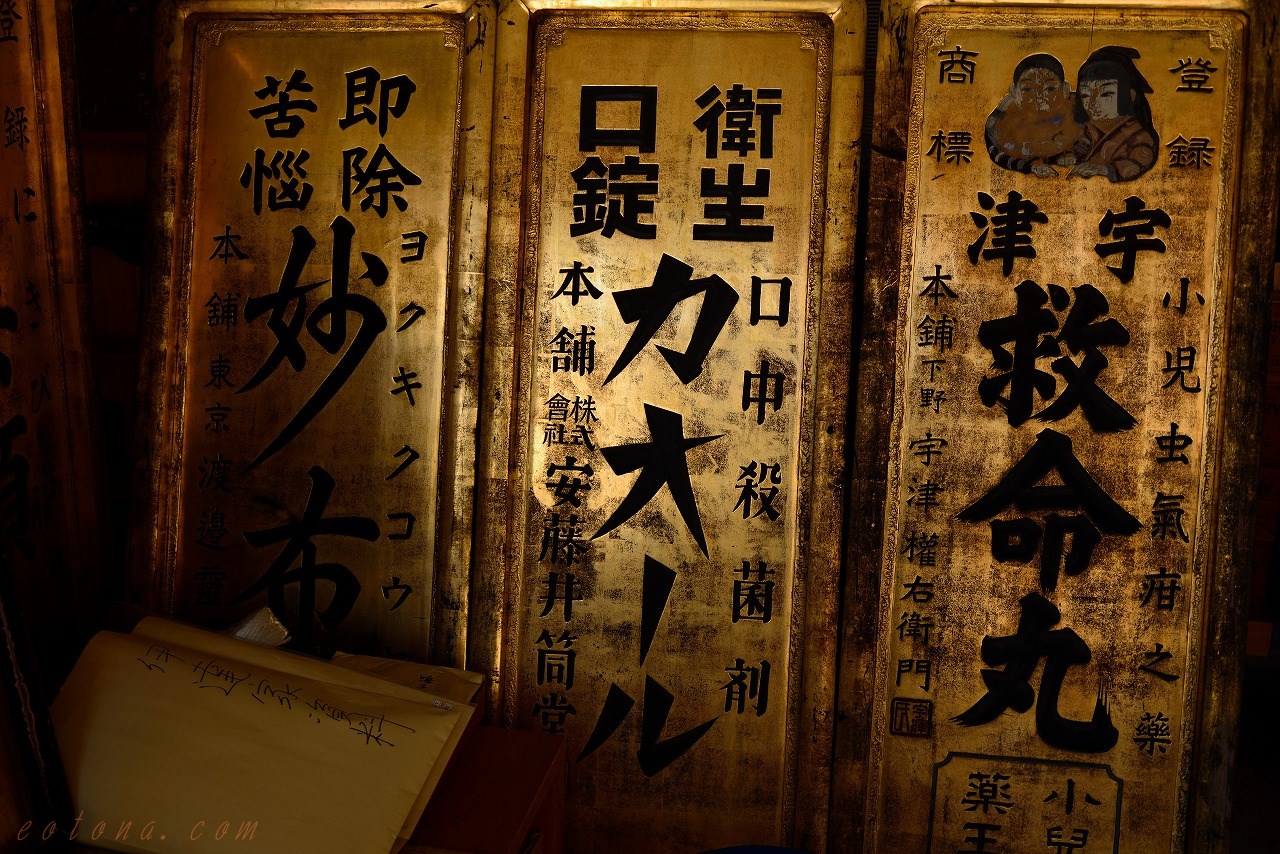 登録
商標
宇津
小児虫氣疳之藥
救命丸
本鋪下野宇津權右衛門
小兒
薬王
衛生
口錠
口中殺菌剤
カオール
本舗株式會社安藤井筒堂
即除
苦惱
ヨクキクコウ
妙布
本舗東京渡邉
登録にきび
eotona.com